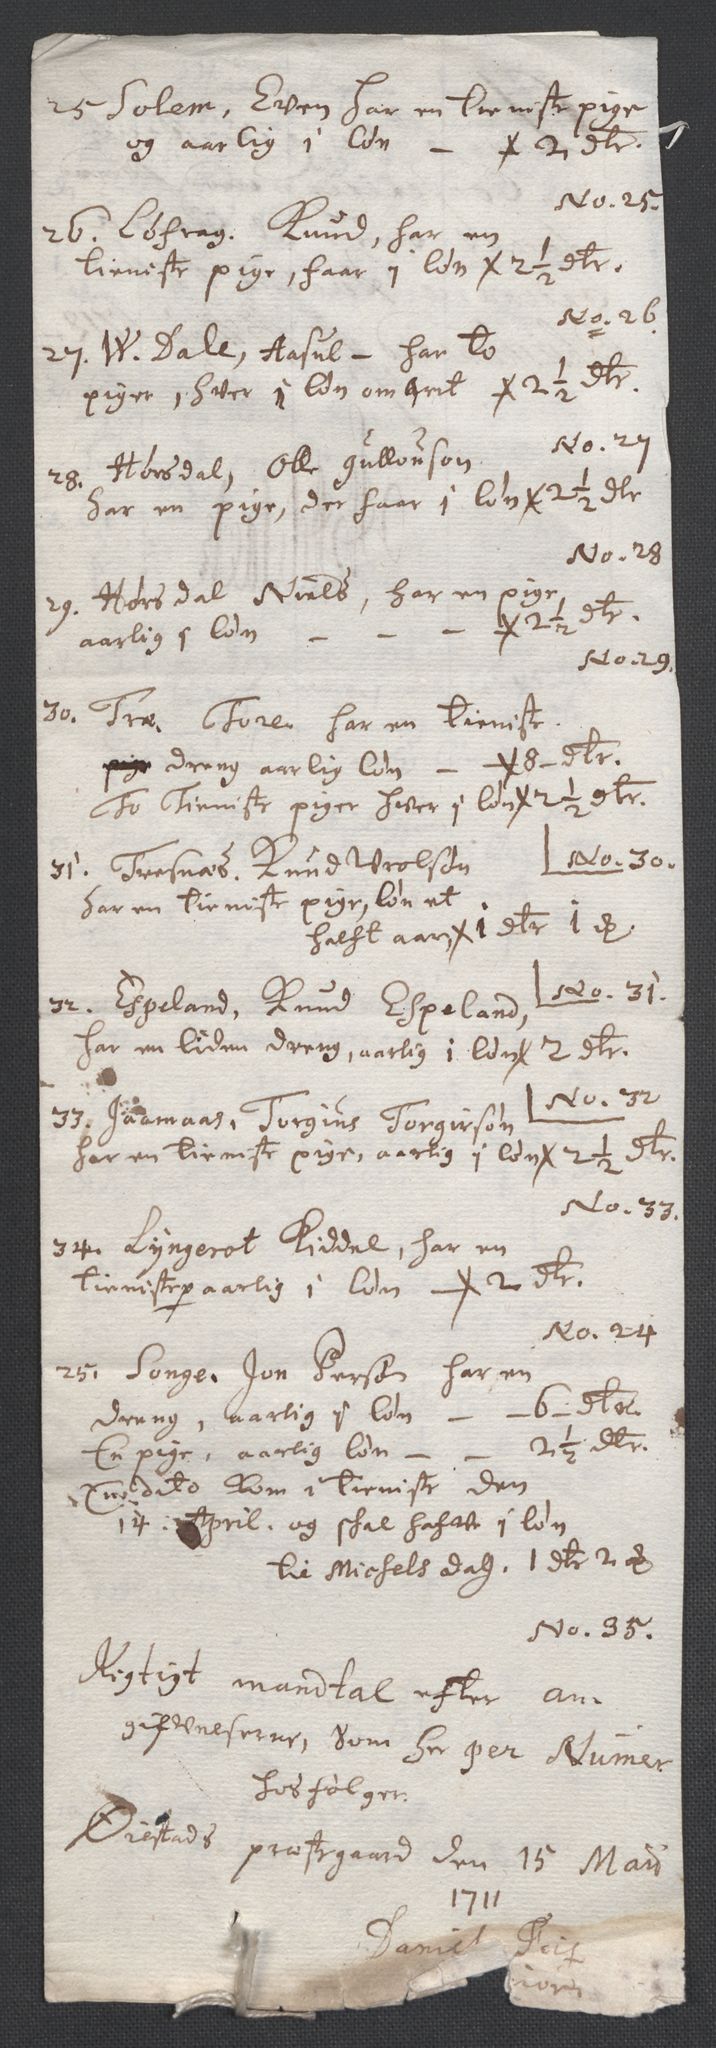 25 Solem, Even har en tieniste pige
og aarlig i løn — ✗ 2 dlr.
No. 25.
26. Løfrag. Knud, har en
tieniste pige, faar i løn ✗ 2½ dlr.
No. 26.
27. W. Dale, Aasul — har to
piger, hver i løn ombrit ✗ 2½ dlr.
No. 27
28. Hørsdal, Olle gullouson
har en pige, der faar i løn ✗ 2½ dlr
No. 28
29. Hørsdal Niels, har en pige,
aarlig i løn — — — ✗ 2½ dlr.
No. 29.
30. Træ. Tore. har en tieniste
dreng aarlig løn — ✗ 8 — dlr.
To Tieniste piger hver i løn ✗ 2½ dlr.
No. 30.
31. Tresnæs. Knud Vrolsøn
har en tieniste pige, løn et
halft aar, ✗ 1 dlr 1
No. 31.
32. Espeland, Knud Espeland,
har en liden dreng, aarlig i løn ✗ 2 dlr.
No. 32
33. Jaamaas, Torgius Torgirsøn
har en tieniste pige, aarlig i løn ✗ 2½ dlr.
No. 33.
34. Lyngerot Kiddel, har en
tienistep aarlig i løn — ✗ 2 dlr.
No. 24
25. Songe. Jon Persøn har en
dreng, aarlig i løn — — 6 — dlr.
En pige, aarlig løn — — 2½ dlr.
dito kom i tieniste den
14. April. og skal hafve i løn
til Michels dag. 1 dlr 2
No. 35.
Rigtigt mandtal efter an-
gifvelserne, som her per Numer
hosfølger.
Øiestads præstegaard den 15 Maii
1711
Daniel